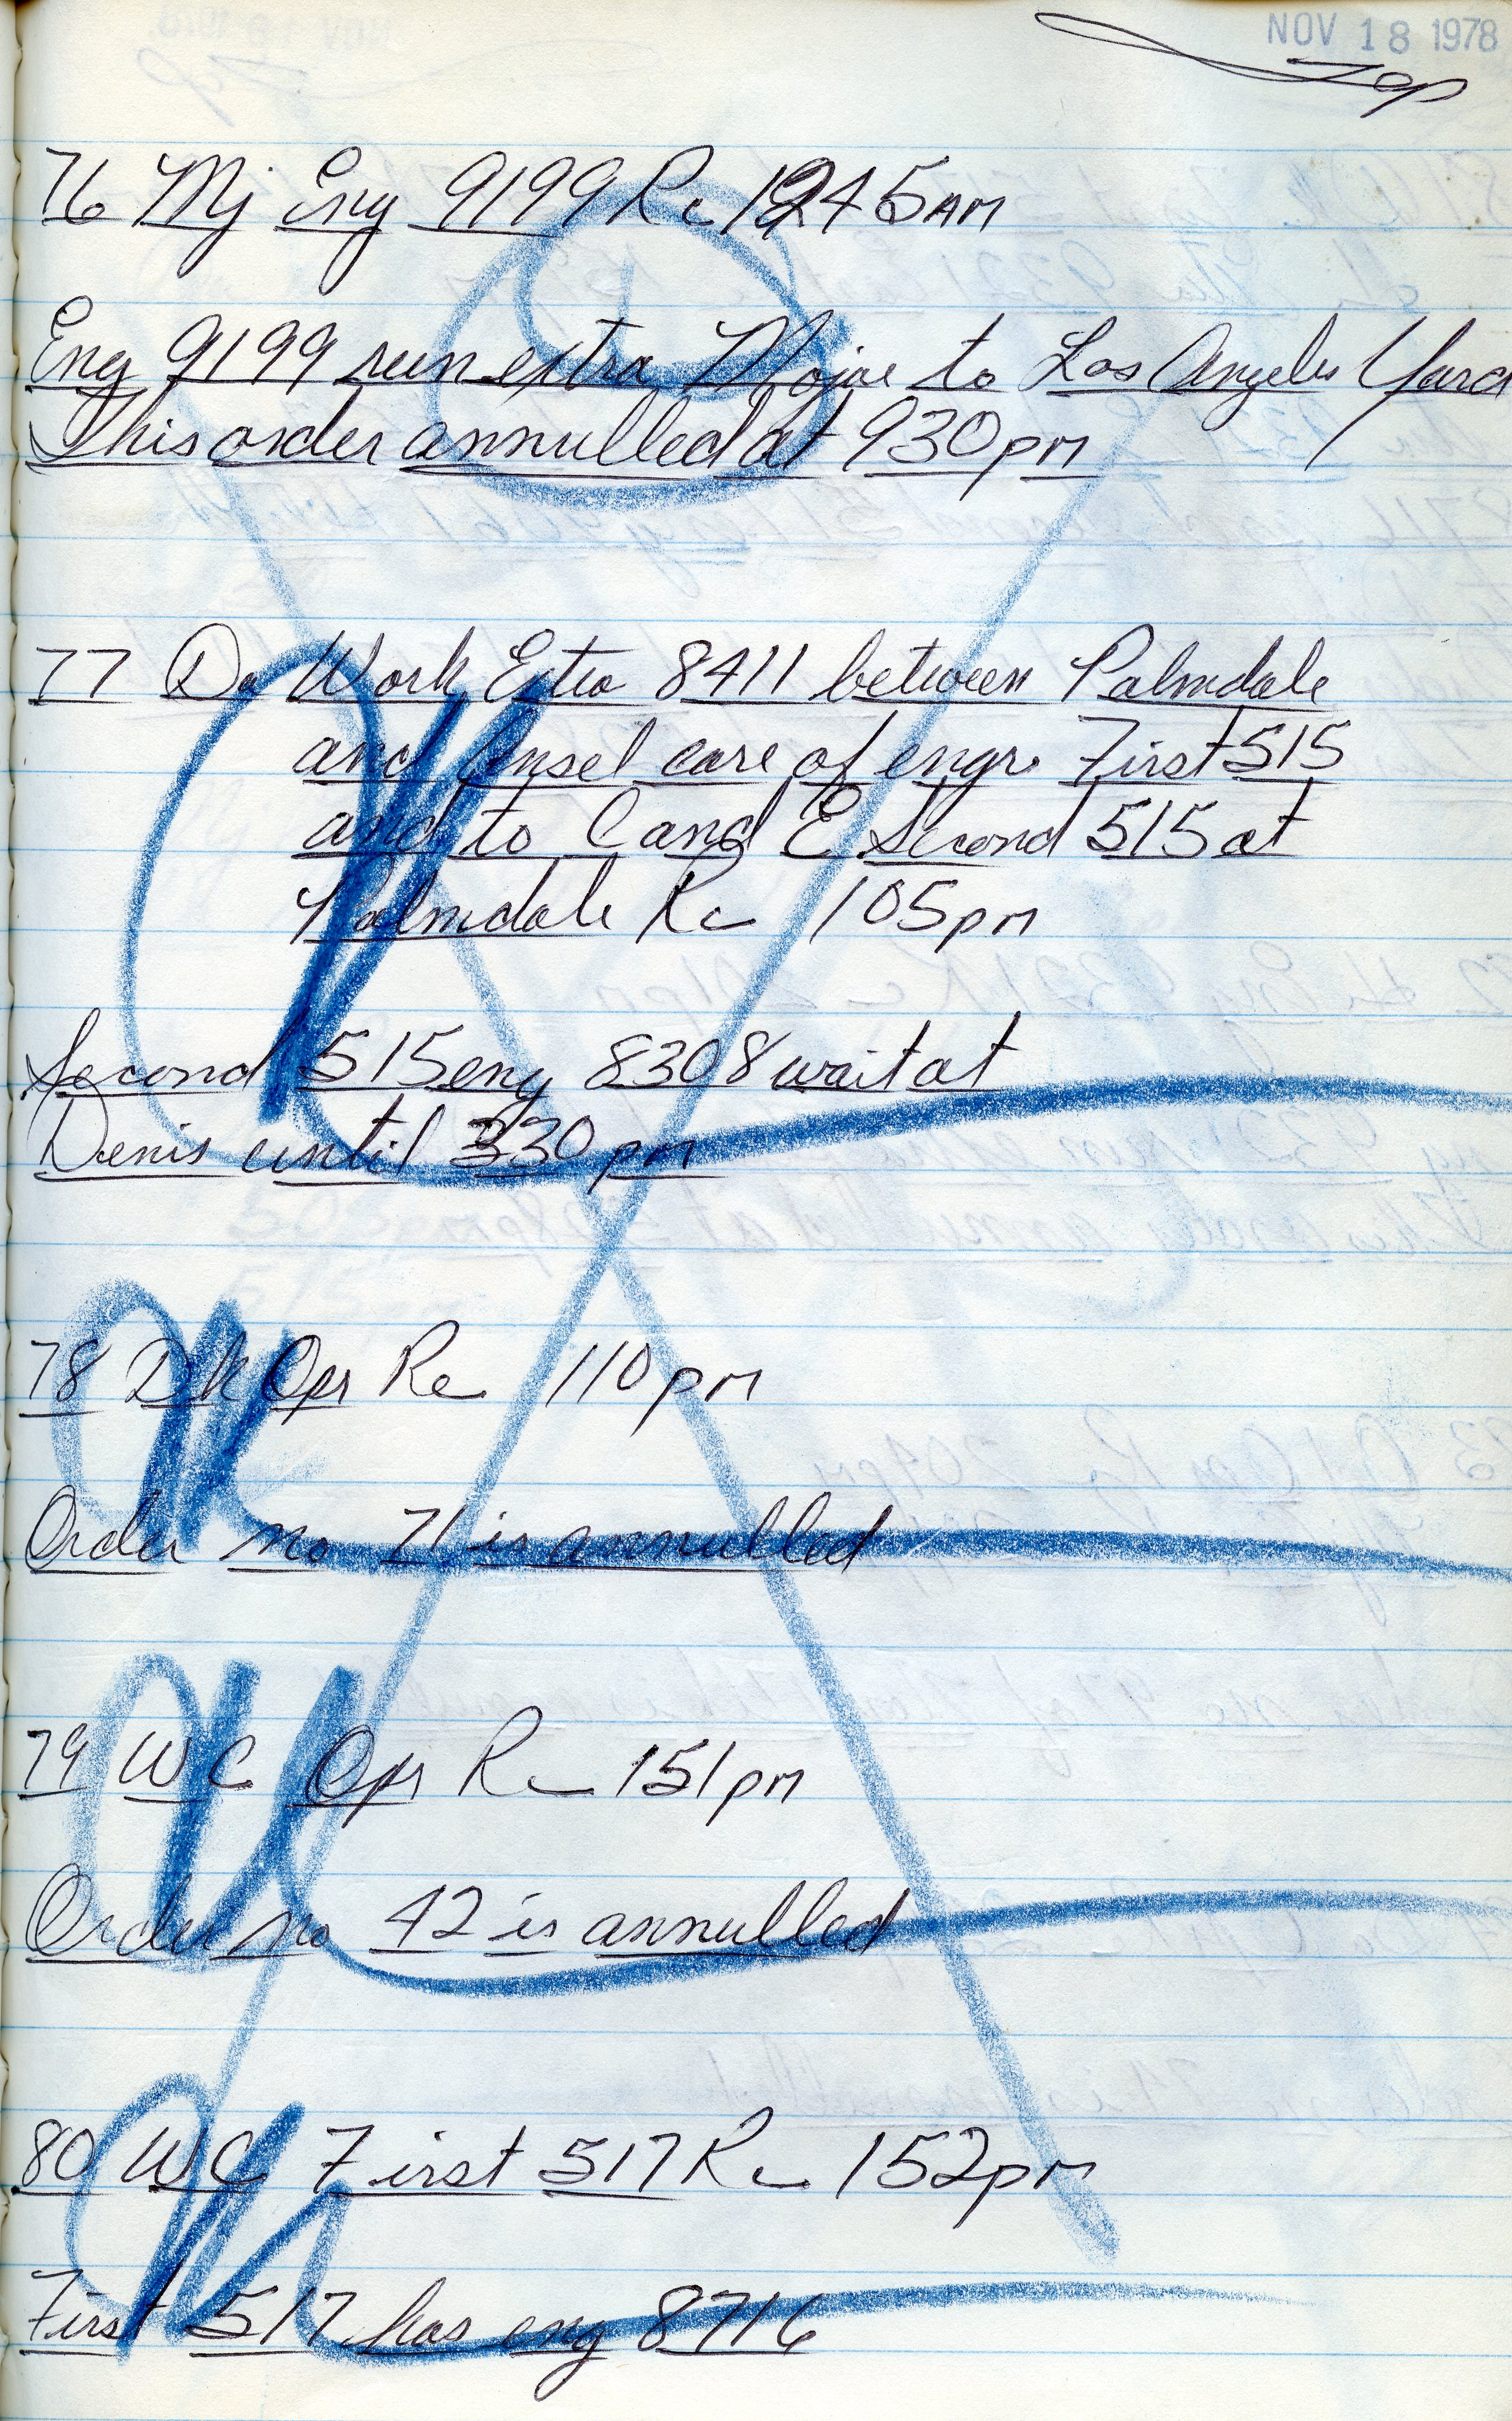 NOV 18 1978
76 Mj Eng 9199 Rc 1245AM
Eng 9199 run extra Mojave to Los Angeles Yard
This order annulled at 930pm
77 Da Work Extra 8411 between Palmdale
and Ansel care of engr. First 515
and to C and E Second 515 at
Palmdale Rc 105pm
Second 515 eng 8308 wait at
Denis until 330pm
78 Dk Opr Rc 110pm
Order no 71 is annulled
79 WC Opr Rc 151pm
Order no 42 is annulled
80 WC First 517 Rc 152pm
First 517 has eng 8716